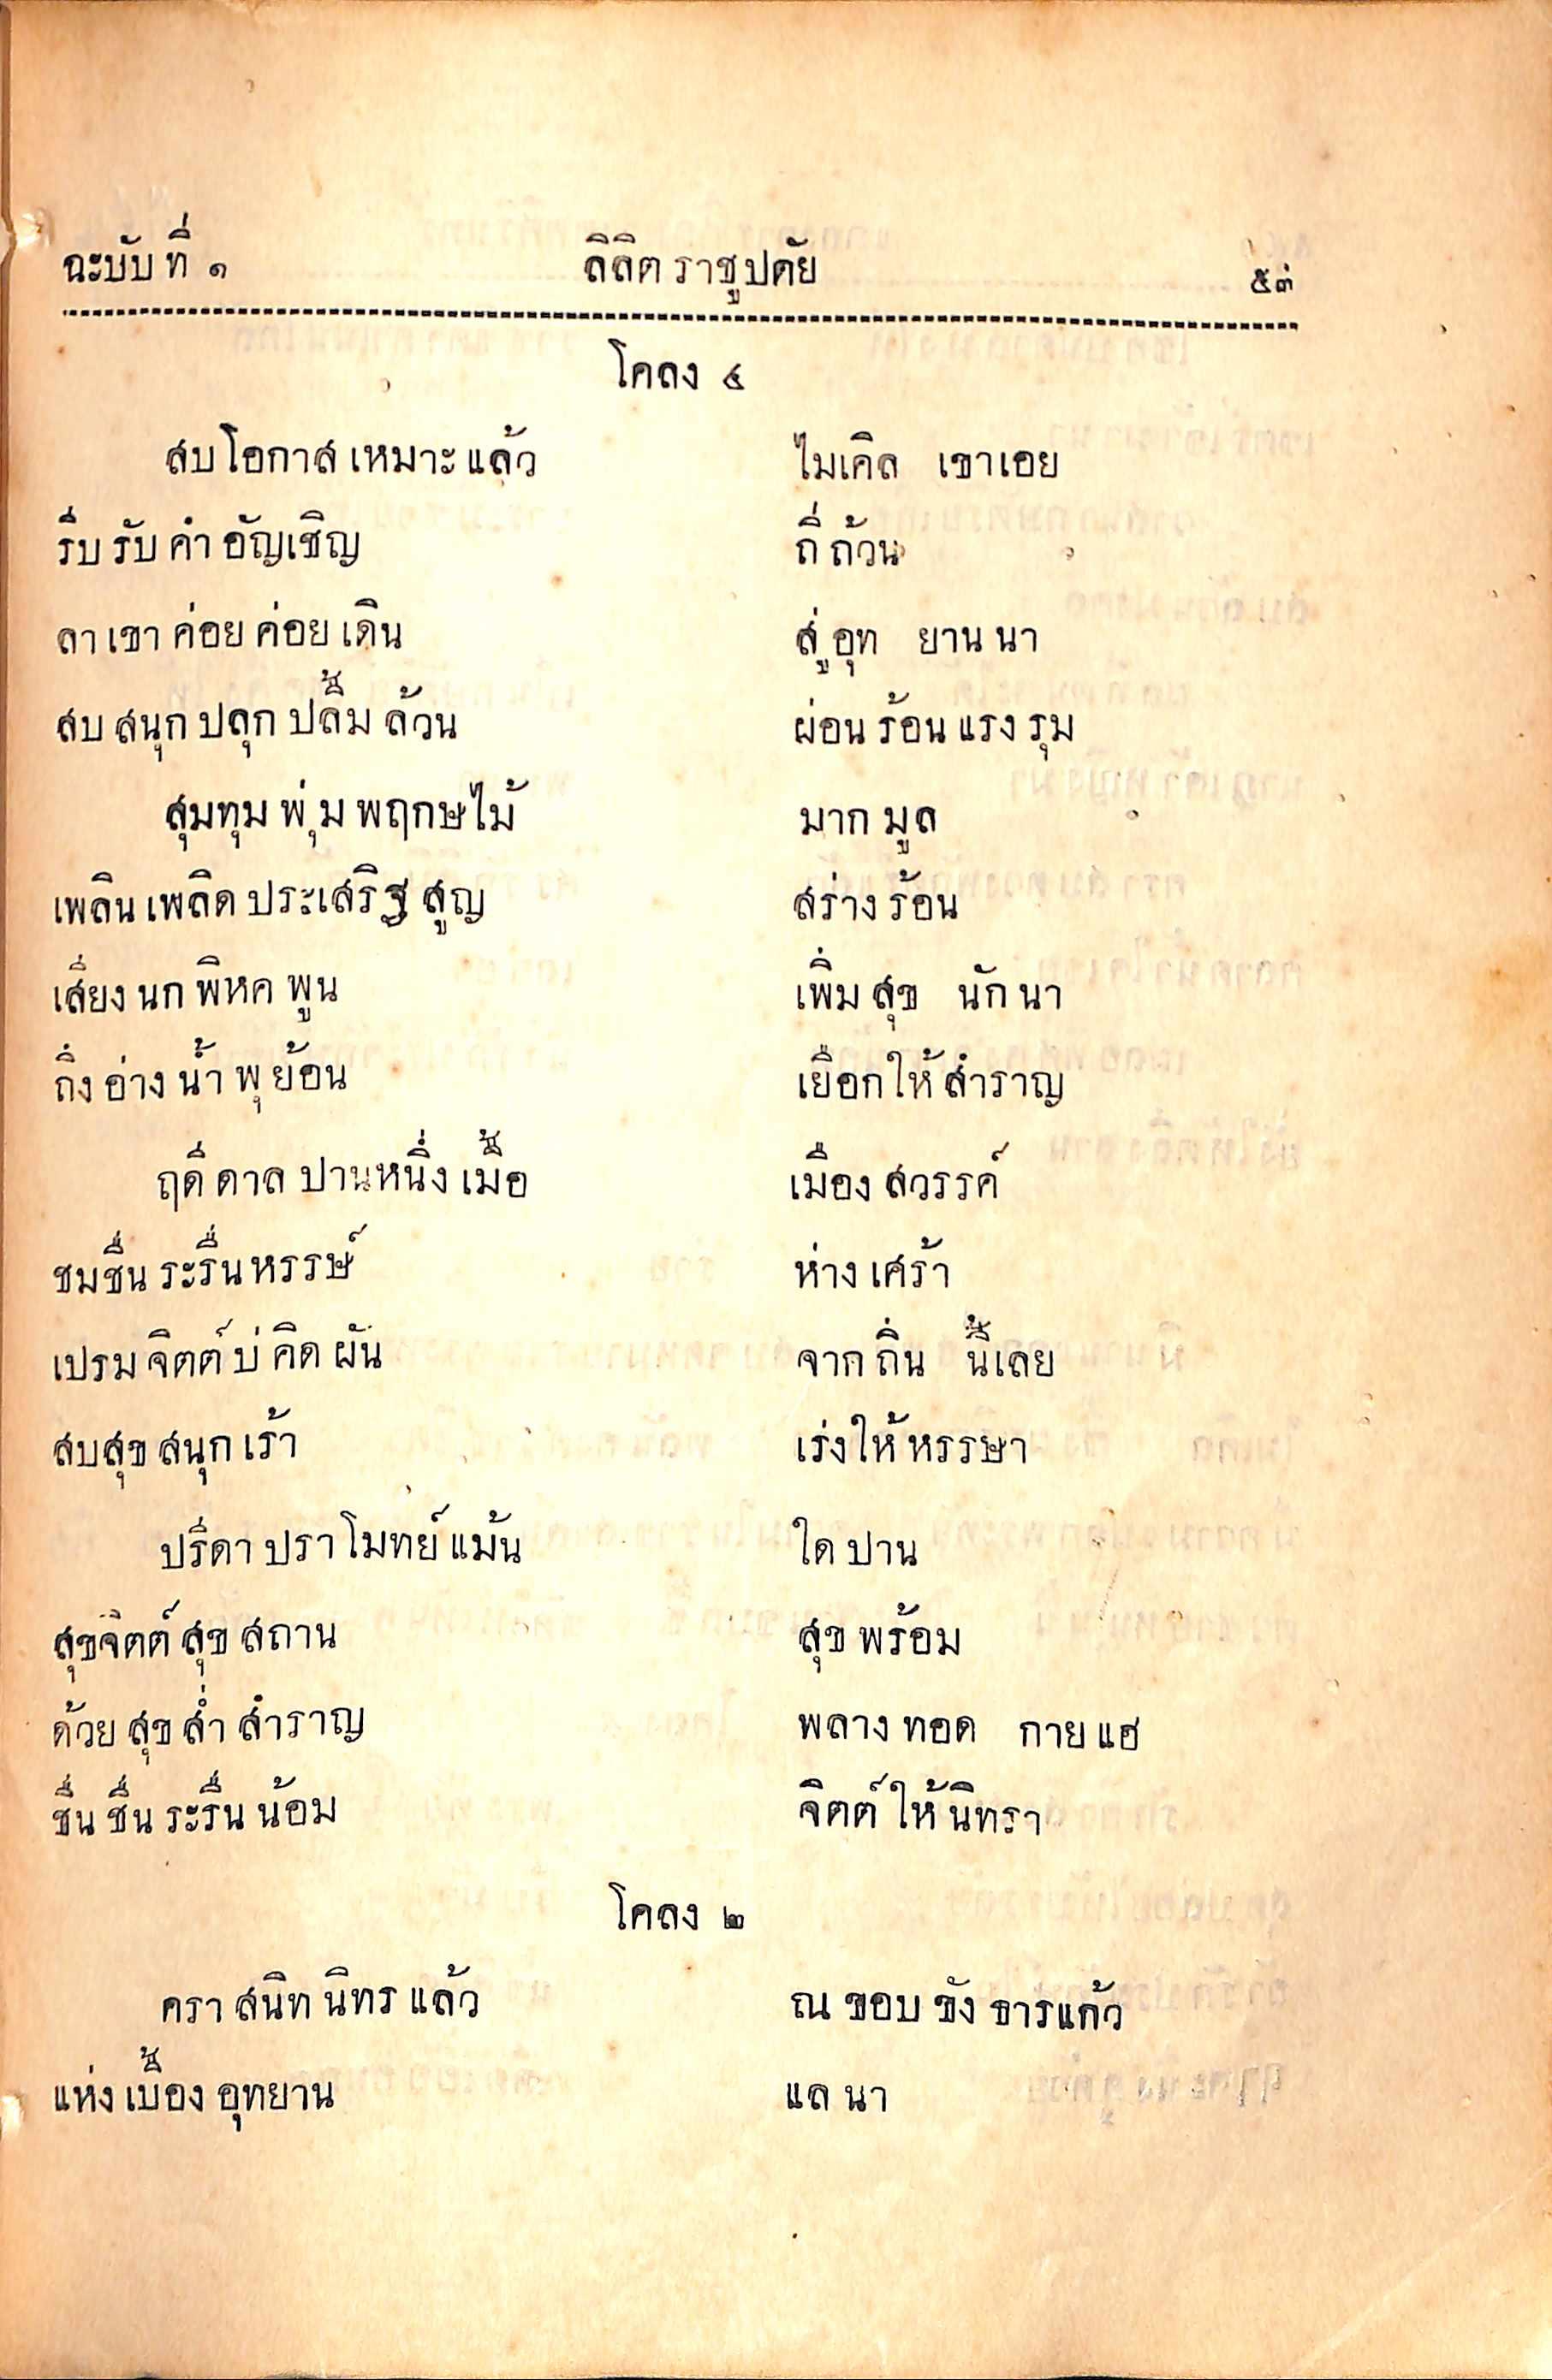 ฉะบับที่ ๑ ลิลิตราชูปตัย ๕๓
โคลง ๔
สบโอกาสเหมาะแล้ว ไมเคิล เขาเอย
รีบรับคำอัญเชิญ ถี่ถ้วน
ลาเขาค่อยค่อยเดิน สู่อุท ยานนา
สบสนุกปลุกปลื้มล้วน ผ่อนร้อนแรงรุม
สุมทุมพุ่มพฤกษไม้ มากมูล
เพลินเพลิดประเสริฐสูญ สร่างร้อน
เสียงนกพิหคพูน เพิ่มสุข นักนา
ถึงอ่างน้ำพุย้อน เยือกให้สำราญ
ฤดีดาลปานหนึ่งเมื้อ เมืองสวรรค์
ชมชื่นระรื่นหรรษ์ ห่างเศร้า
เปรมจิตต์บ่คิดผัน จากถิ่น นี้เลย
สบสุขสนุกเร้า เร่งให้หรรษา
ปรีดาปราโมทย์แม้น ใดปาน
สุขจิตต์สุขสถาน สุขพร้อม
ด้วยสุขส่ำสำราญ พลางทอด กายแฮ
ชื่นชื่นระรื่นน้อม จิตต์ให้นิทรา
โคลง ๒
คราสนิทนิทรแล้ว ณขอบขังธารแก้ว
แห่งเบื้องอุทยาน แลนา